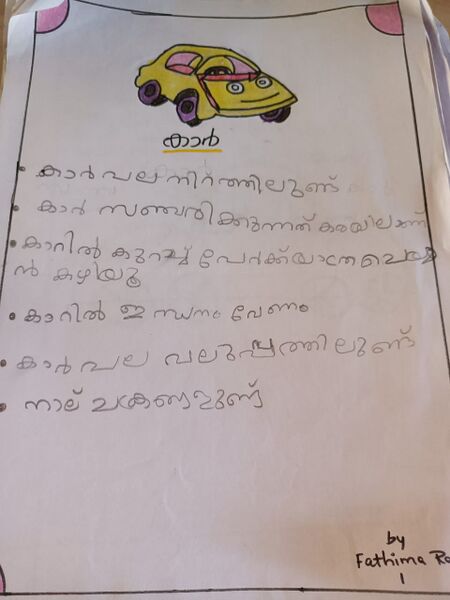 കാർ
• കാർ പല നിറത്തിലുണ്ട്
• കാർ സഞ്ചരിക്കുന്നത് കരയിലാണ്
• കാറിൽ കുറച്ച് പേർക്ക് യാത്ര ചെയ്യാ
ൻ കഴിയൂ
• കാറിൽ ഇന്ധനം വേണം
• കാർ പല വലുപ്പത്തിലുണ്ട്
• നാല് ചക്രങ്ങളുണ്ട്
by
Fathima
1